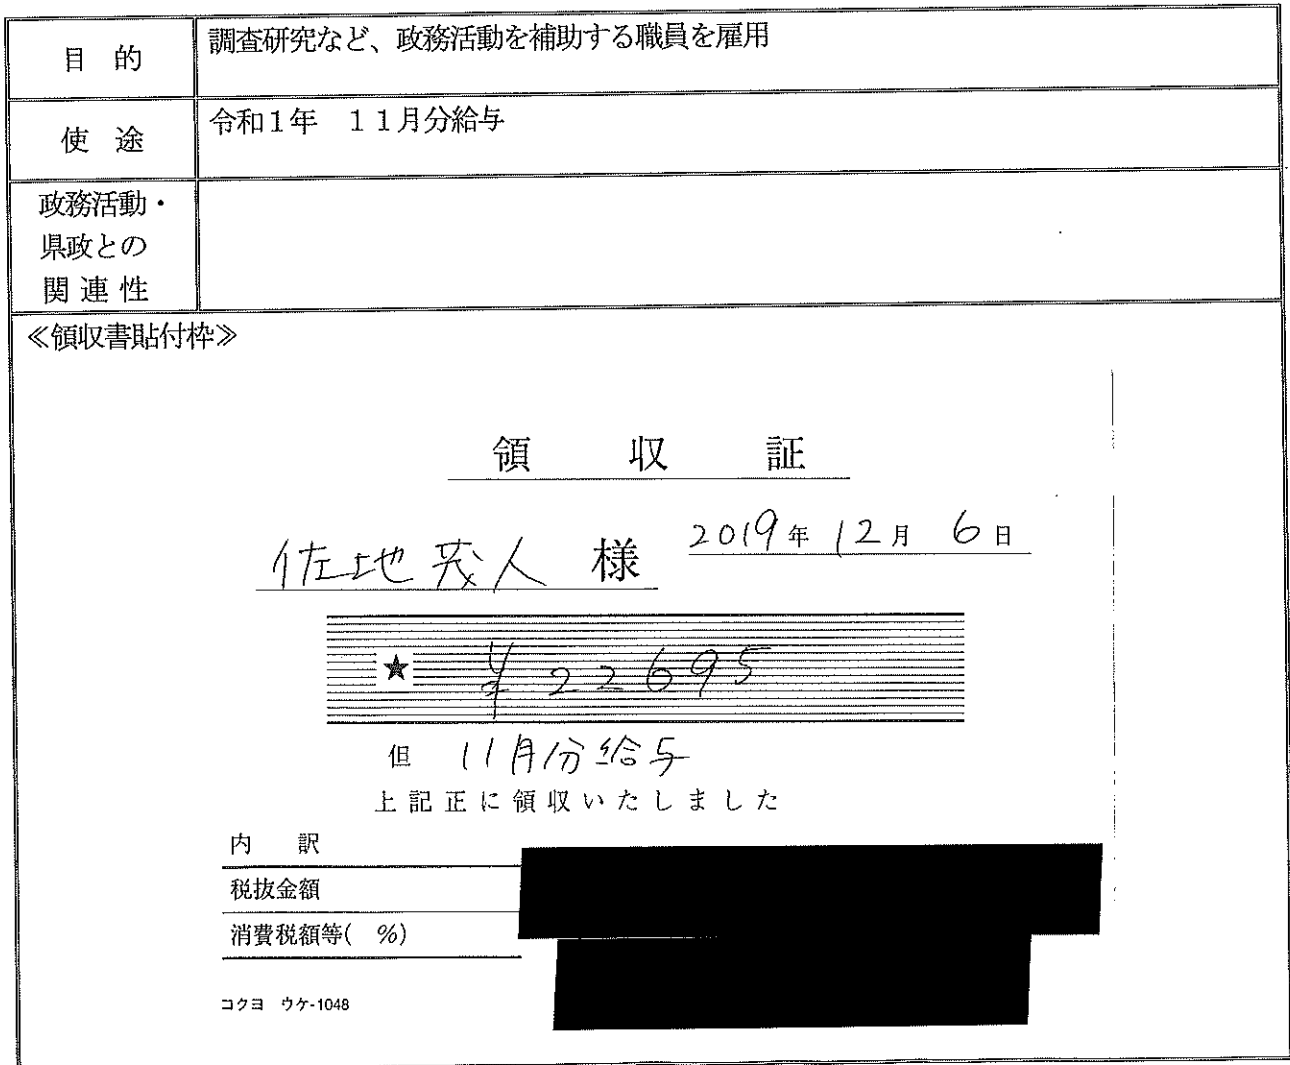 目 的
調査研究など、政務活動を補助する職員を雇用
使 途
令和1年 11月分給与
政務活動・
県政との
関連性
≪領収書貼付枠≫
領 収 証
佐地茂人 様
2019年 12月 6日
★ ¥22695
但 11月分給与
上記正に領収いたしました
内 訳
税抜金額
消費税額等( %)
コクヨ ウケ-1048